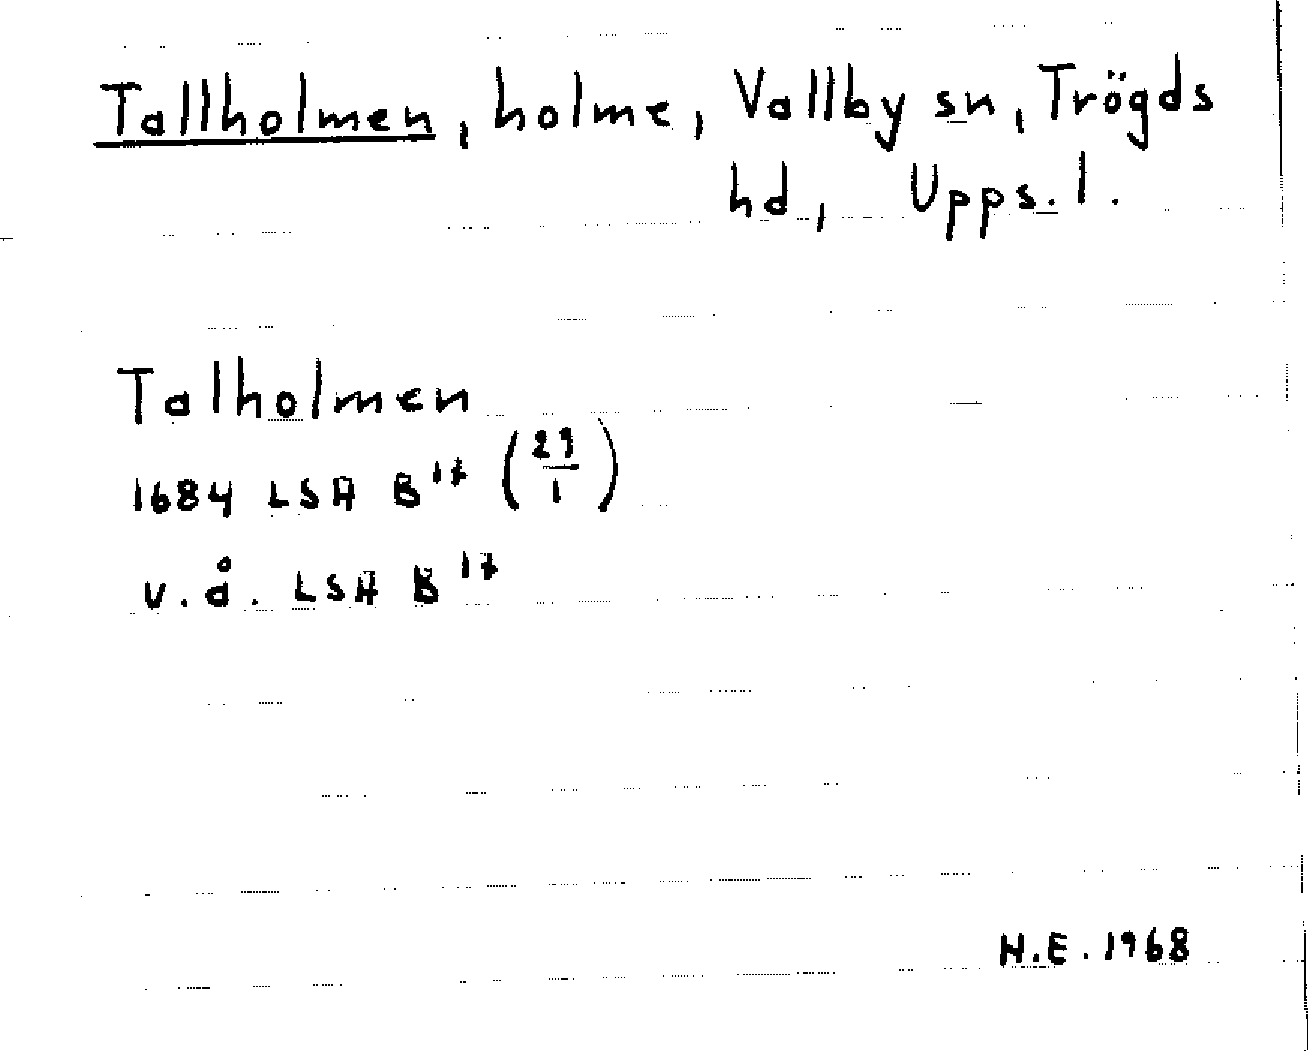 Tallholmen, holme, Vallby sn, Trögds
hd, Upps. l.
Talholmen
1684 LSA B¹⁷ (29/1)
v. å. LSA B¹⁷
H.E. 1968